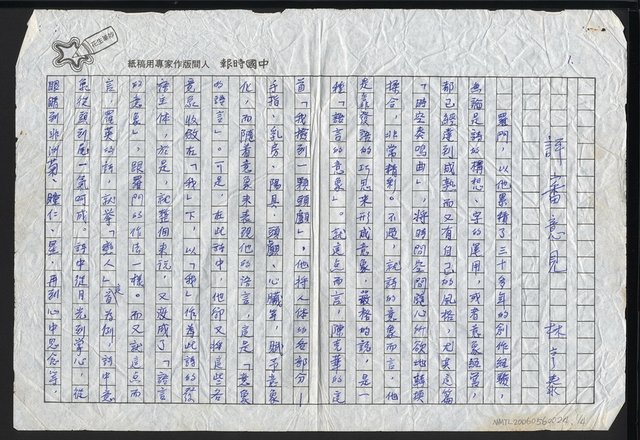 中國時報 人間版作家專用稿紙
1.
評審意見 林亨泰
羅門，以他累積了三十多年的創作經驗，
無論是詩的構想、字的運用，或者意象經營，
都已經達到成熟而又有自己的風格，尤其這篇
「時空奏鳴曲」，將時間空間隨心所欲地轉換
揉合，非常精彩。不過，就詩的意象而言，他
是靠從語的巧思來形成意象，嚴格的說，是一
種「語言的意象」。就這点而言，陳克華的這
首「我撿到一顆頭顱」，他將人体的各部分——
手指、乳房、陽具、頭顱、心臟等，賦予意象
化，而隨着意象來表現他的語言，這是「意象
的語言」。可是，在此詩中，他卻又將這些各
意象收斂在「我」下，以「我」作為此詩的發
語主体，於是，就整個來說，又變成了「語言
的意象」，跟羅門的作法一樣。而又就這点而
言，羅英的詩，就舉「戀人」這首為例，詩中意
象從頭到尾一氣呵成。詩中從月光到掌心，從
眼睛到非洲菊、瞳仁、星，再到心中思念等，
NMTL20060560024